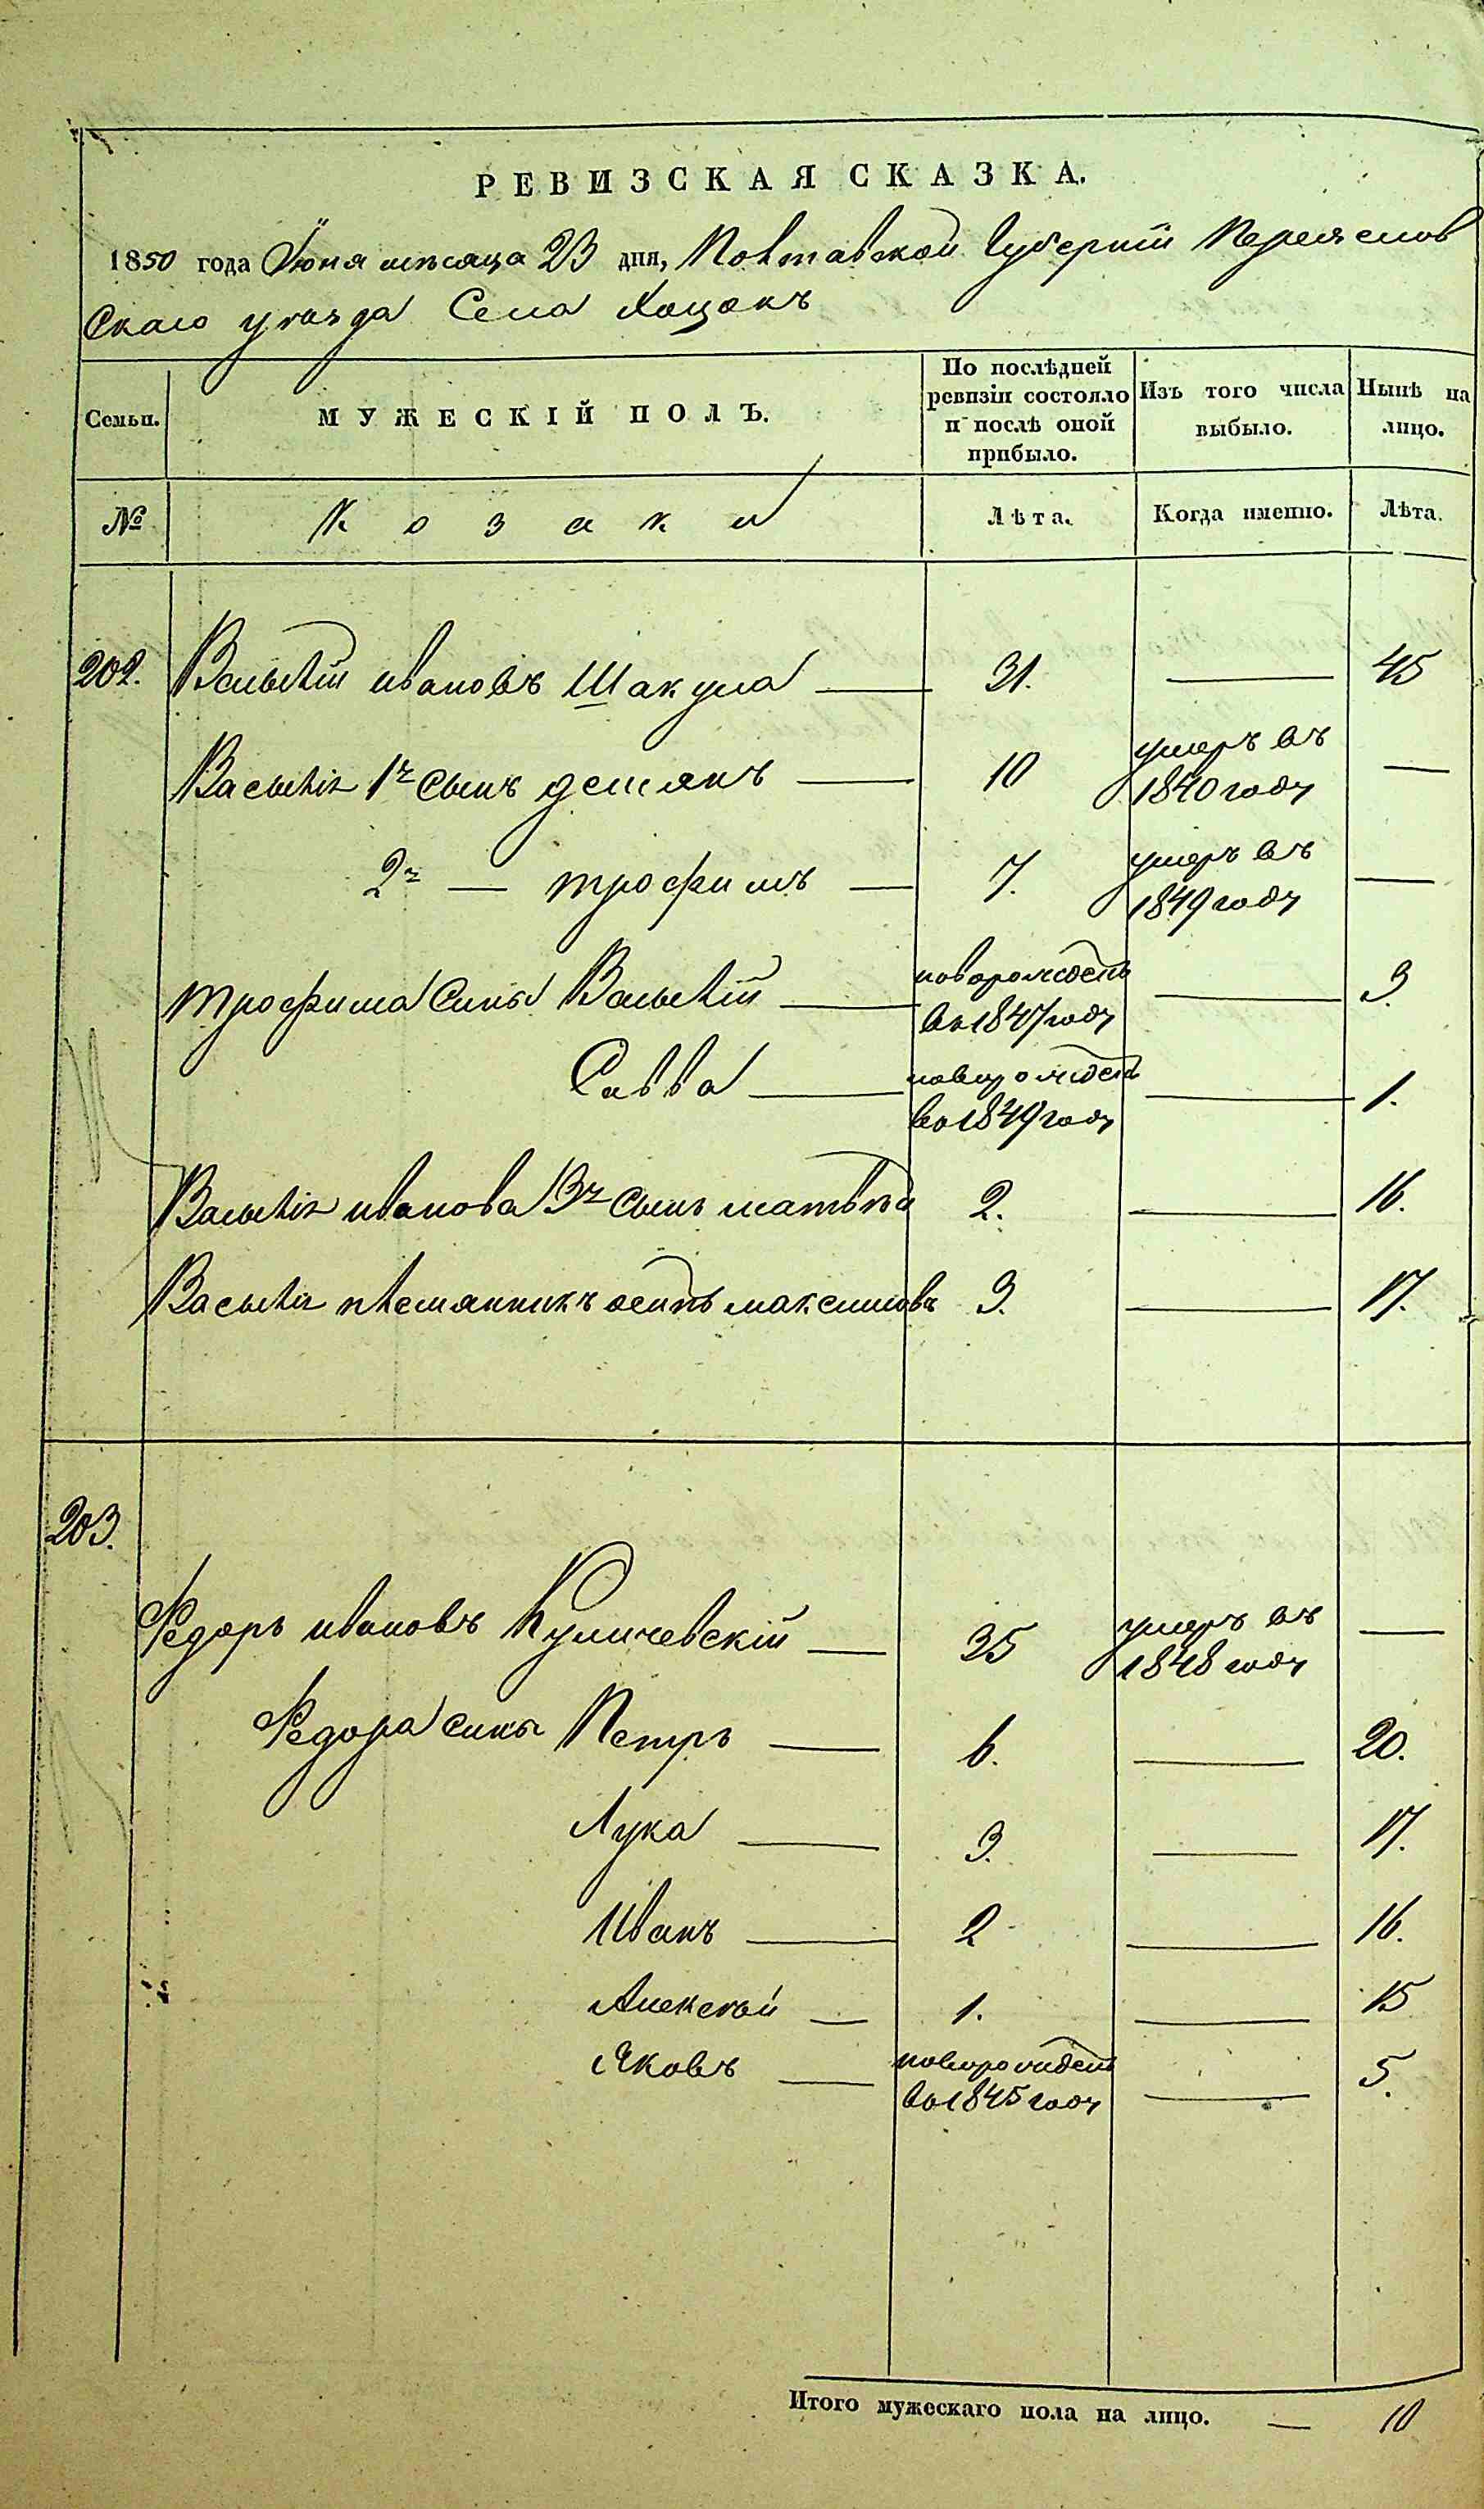 РЕВИЗСКАЯ СКАЗКА.
1850 года Июня месяца 23 дня, Полтавской Губернии Переяслов
Скаго уезда Села Хоцокъ
Семьи. МУЖЕСКІЙ ПОЛЪ. По послѣдней ревизіи состояло и послѣ оной прибыло. Изъ того числа выбыло. Нынѣ на лицо.
№ Козаки Лѣта. Когда именно. Лѣта.
202. Василій ивановъ Шакула — 31. — 45
Василія 1й Сынъ демянъ — 10 умеръ въ 1840 году —
2й — трофимъ — 7. умеръ въ 1849 году —
трофима Сины Василій — новорожденъ во 1847 году — 3.
Савва — новорожденъ во 1849 году — 1.
Василія иванова 3й Сынъ матвѣй 2. — 16.
Василія племянникъ осипъ максимовъ 3. — 17.
203.
Федоръ ивановъ Куличевскій — 35 умеръ въ 1848 году —
Федора сины Петръ — 6. — 20.
Лука — 3. — 17.
Иванъ — 2 — 16.
Алексѣй — 1. — 15
Яковъ — новорожденъ во 1845 году — 5.
Итого мужескаго пола на лицо. — 10